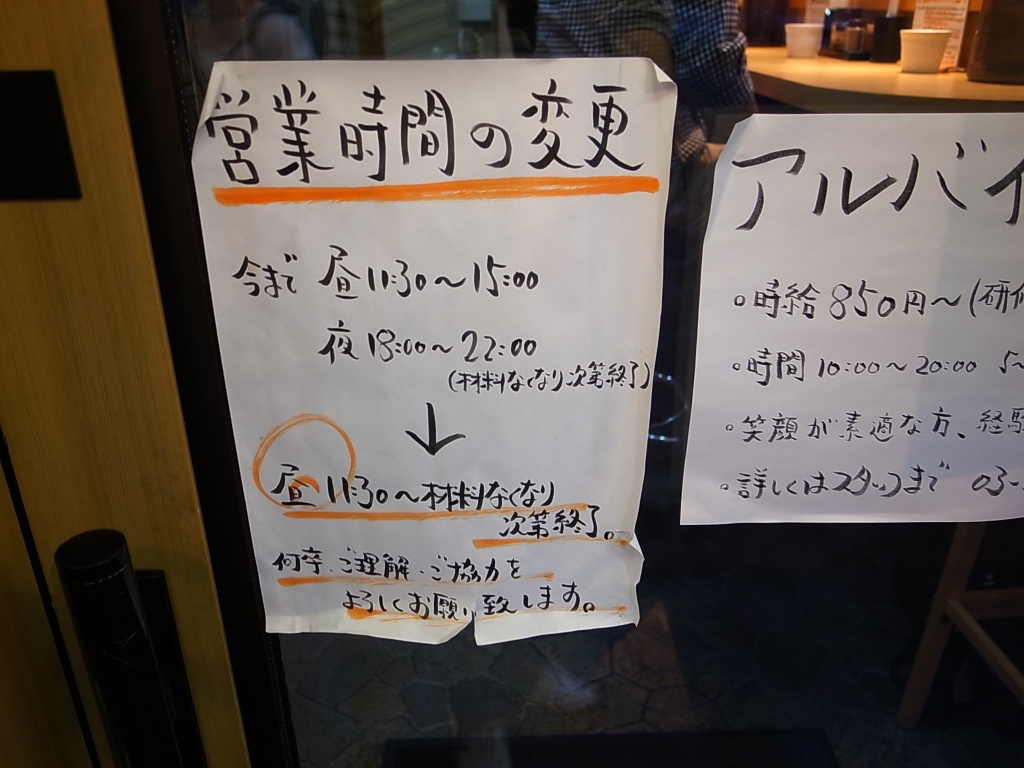 営業時間の変更
今まで 昼 11:30〜15:00
夜 18:00〜22:00
(材料なくなり次第終了)
↓
昼 11:30〜材料なくなり
次第終了。
何卒、ご理解・ご協力を
よろしくお願い致します。
アルバイ
。時給850円〜(研修
。時間 10:00〜20:00 5〜
。笑顔が素適な方、経験
。詳しくはスタッフまで 03-